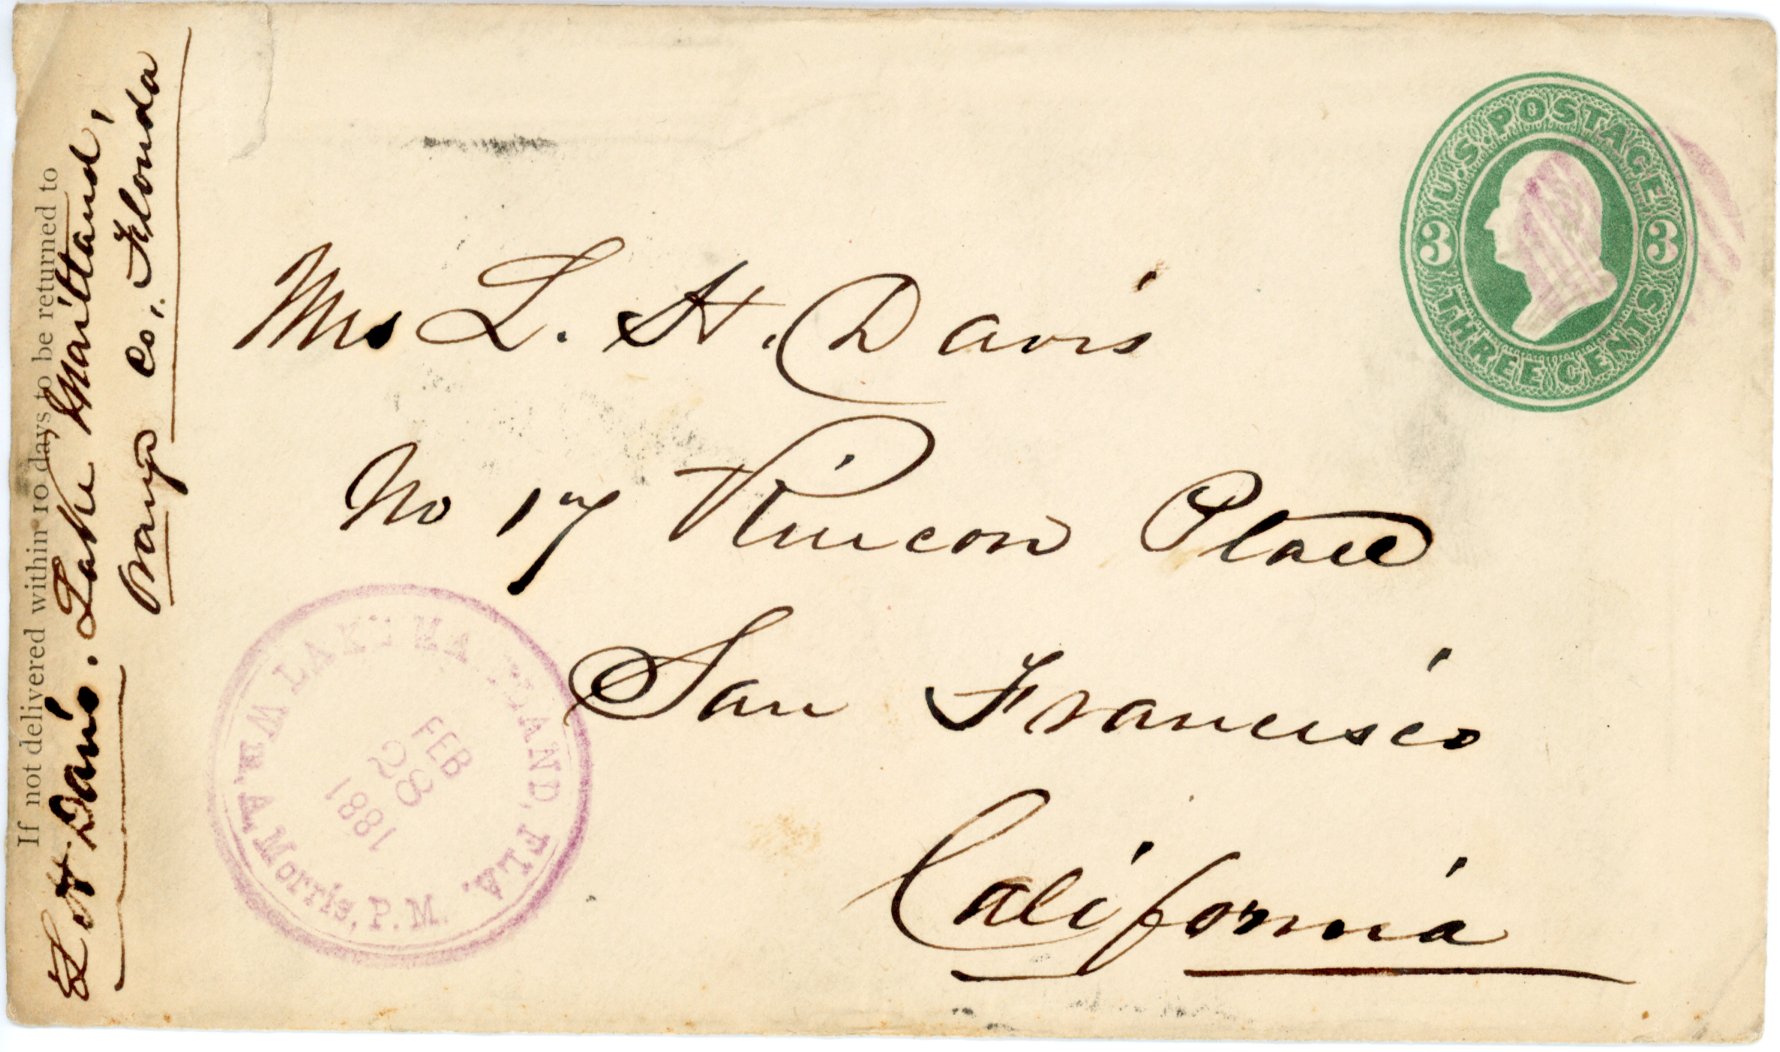 If not delivered within 10 days to be returned to
L H Davis. Lake Maitland,
Orange Co., Florida
U.S. POSTAGE
3 3
THREE CENTS
Mrs L. H. Davis
No 17 Rincon Place
San Francisco
California
LAKE MAITLAND, FLA.
FEB
28
1881
Wm. A. Morris, P.M.